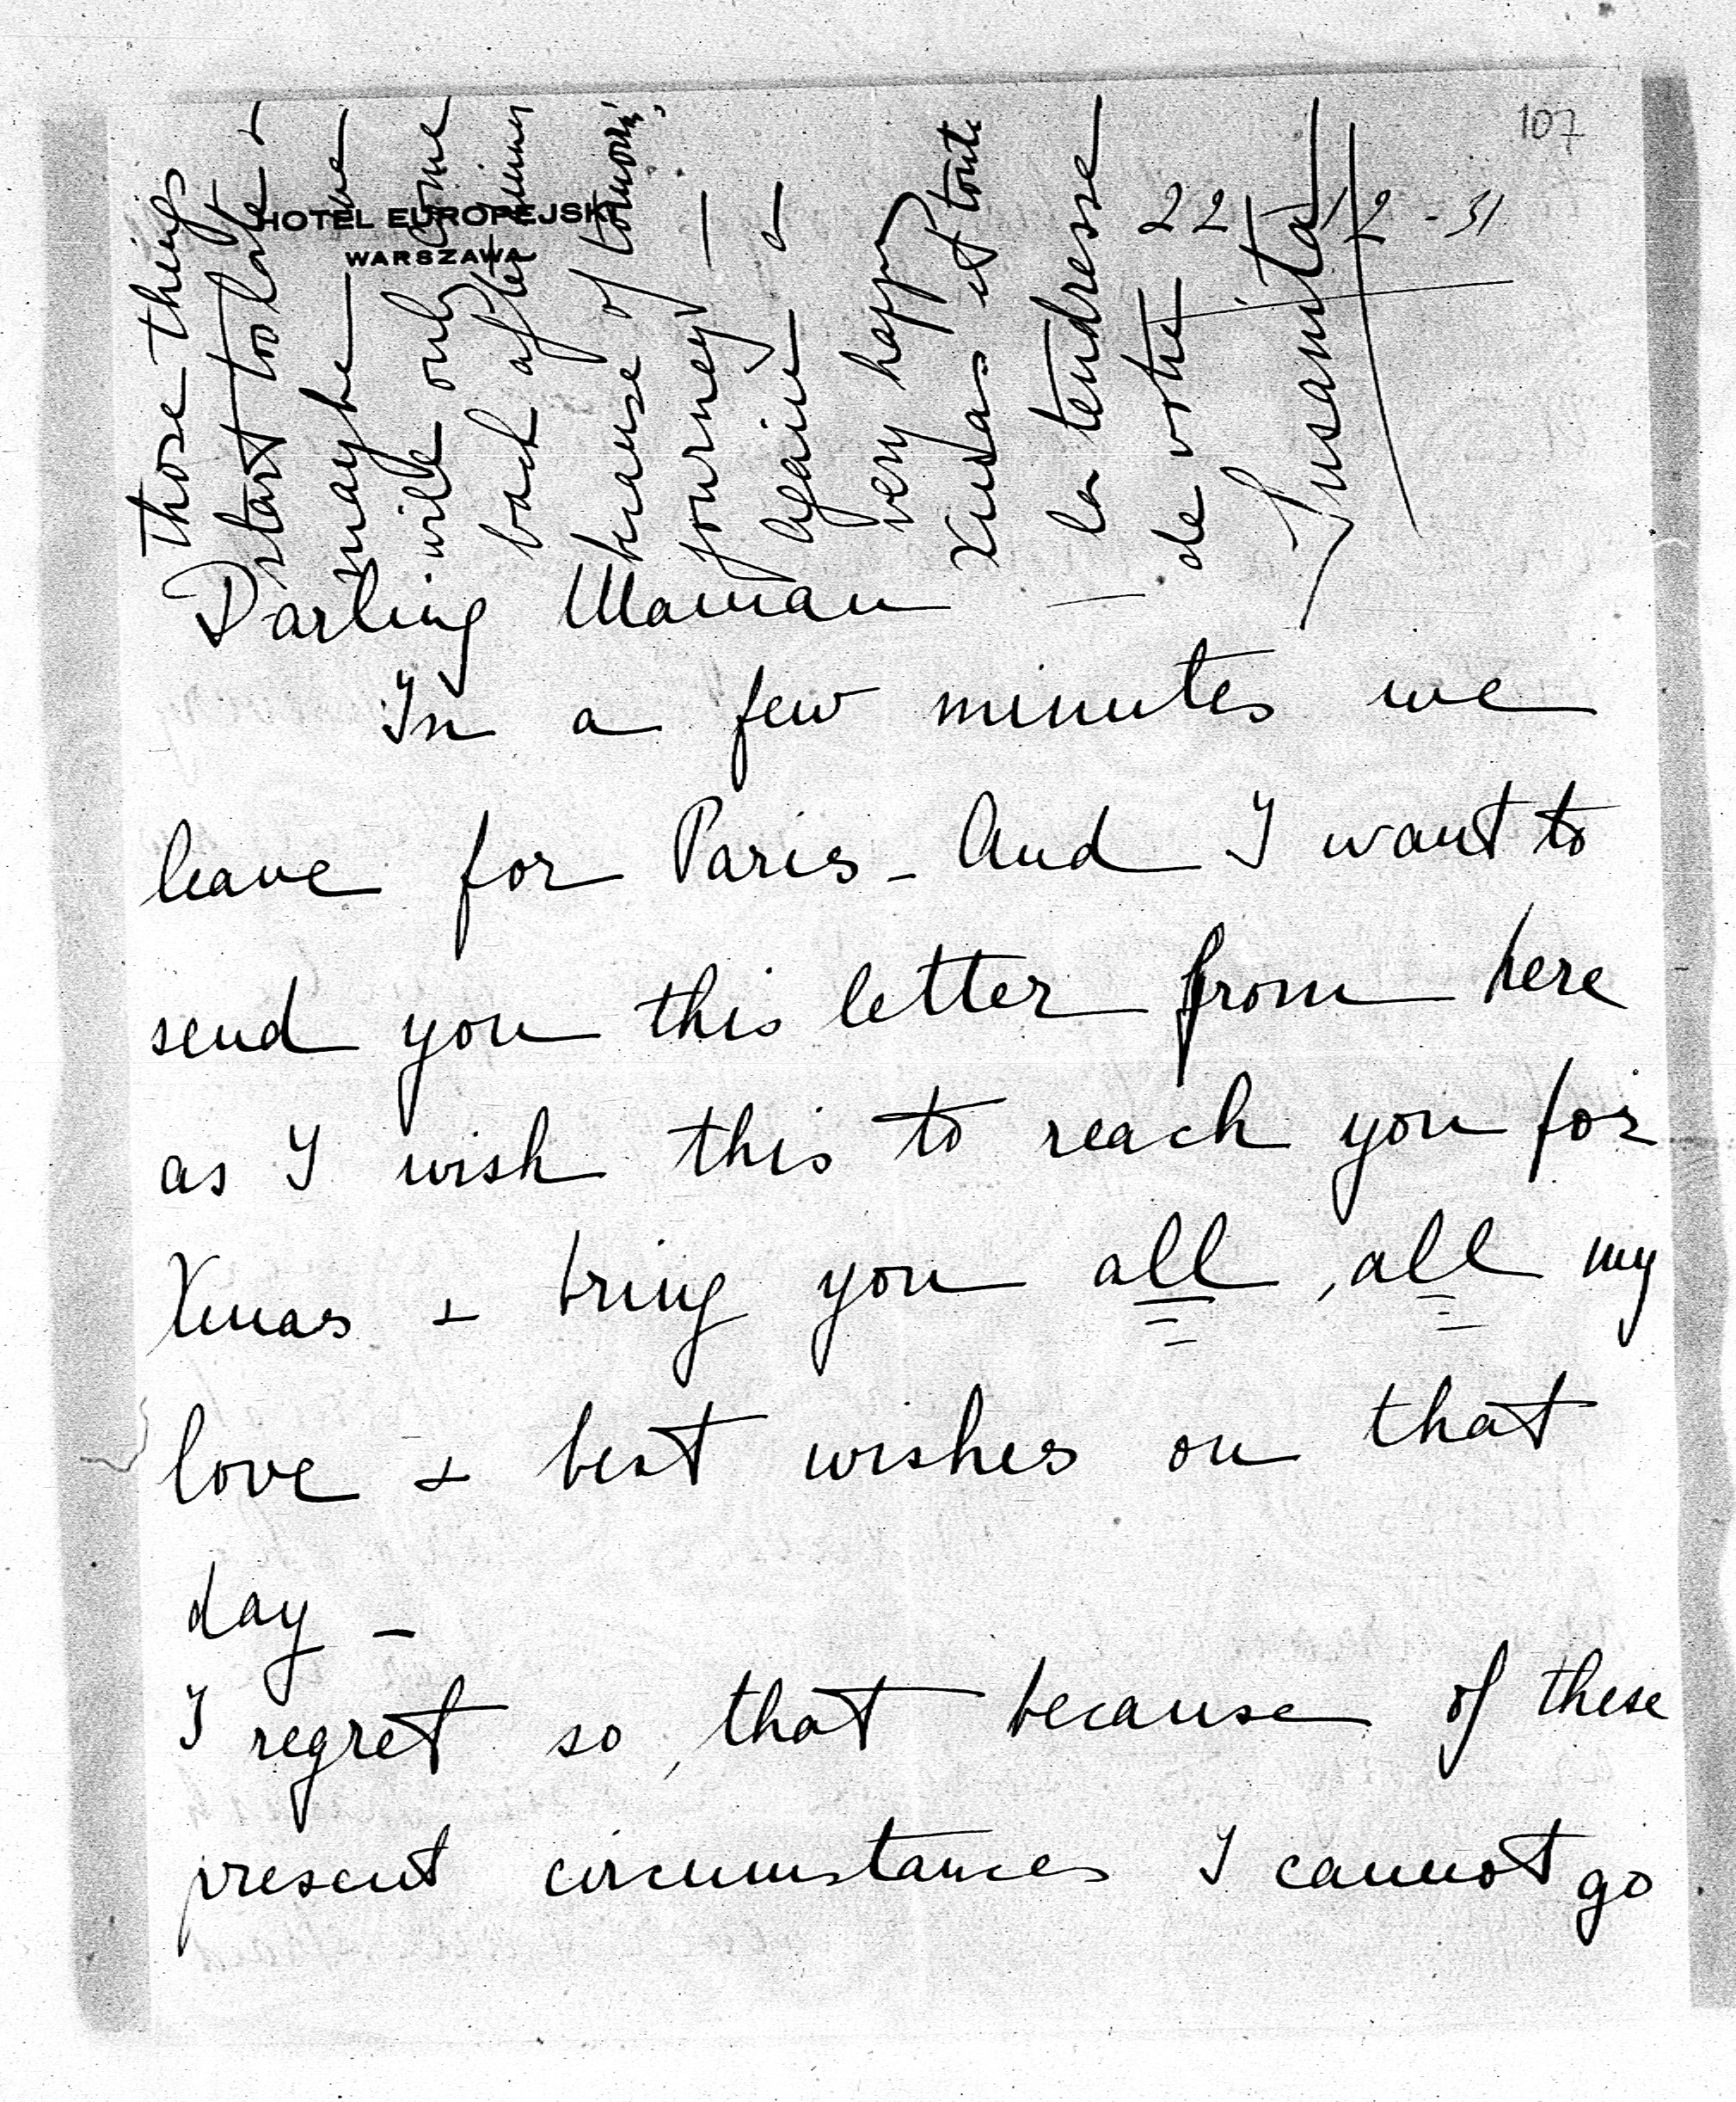 107
HOTEL EUROPEJSKI
WARSZAWA
22 12 - 31
Darling Maman —
In a few minutes we
leave for Paris - And I want to
send you this letter from here
as I wish this to reach you for
Xmas + bring you all, all my
love + best wishes on that
day -
I regret so, that because of these
present circumstances I cannot go
those things
start too late +
maybe we
will only come
back after dinner
because of
journey —
again —
very happy
Xmas et toute
la tendresse
de votre
Susanita